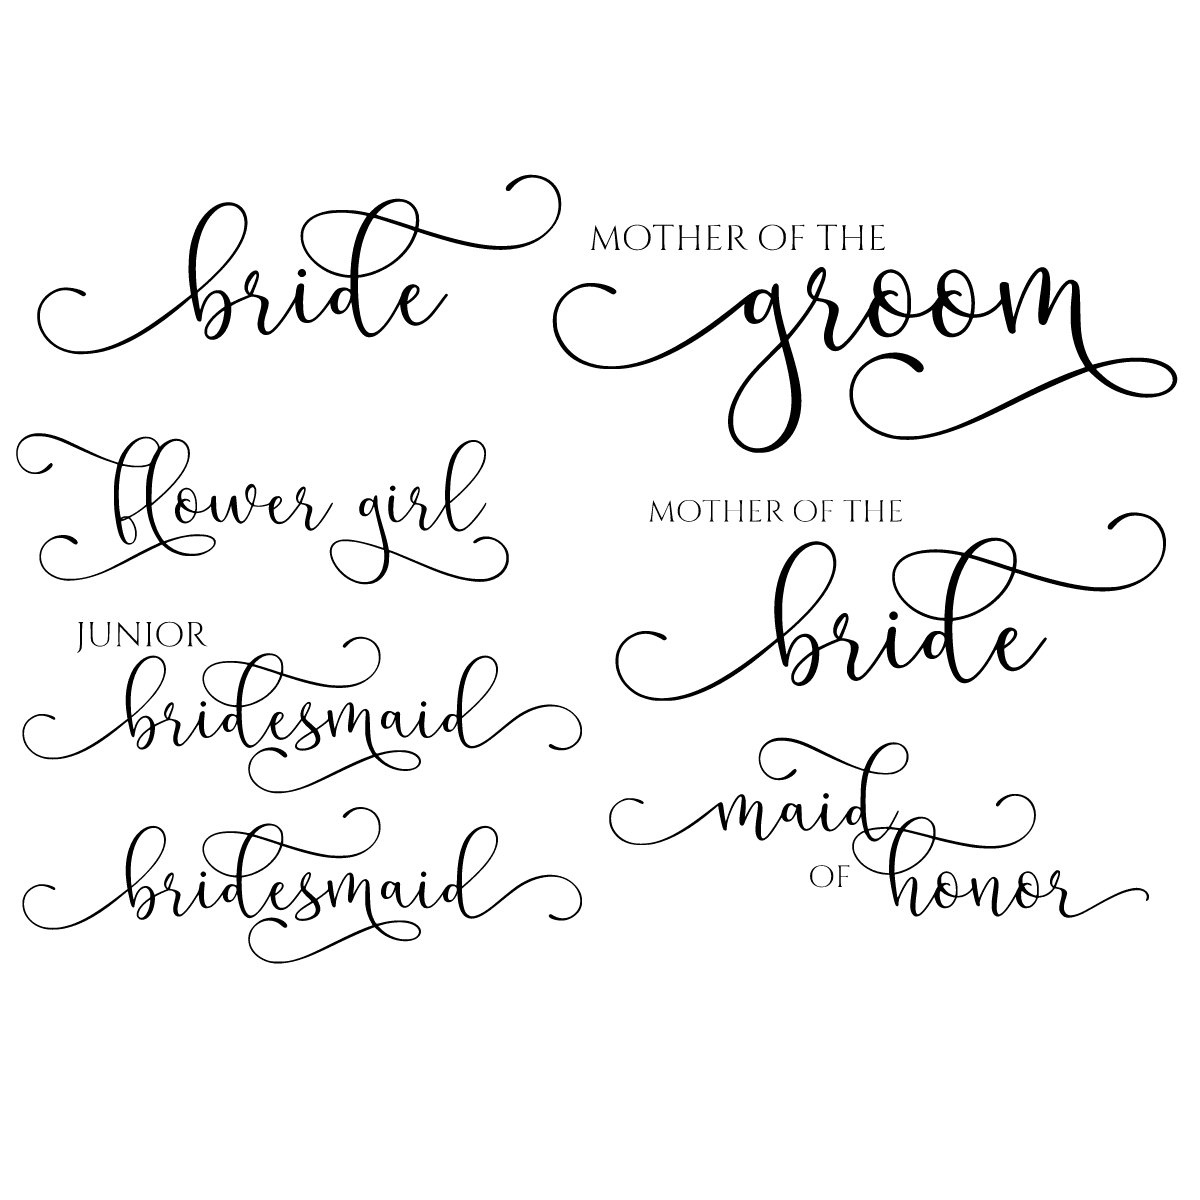 bride
MOTHER OF THE
groom
flower girl
MOTHER OF THE
bride
JUNIOR
bridesmaid
maid
OF honor
bridesmaid